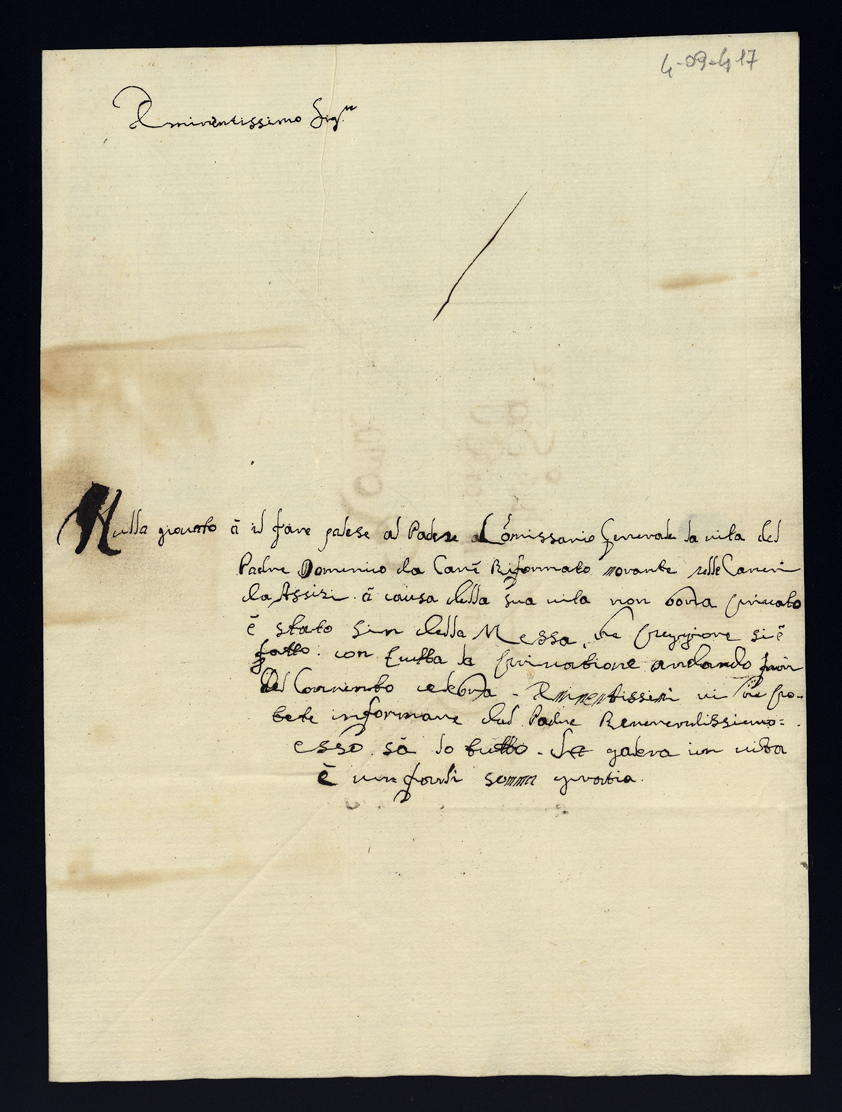 4-09-417
Eminentissimo Sig.re
Nulla giovato à il fare palese al Padre Comissario Generale la vita del
Padre Domenico da Riformato morante nelle Carceri
da Assisi à causa della sua vita non bona privato
è stato sin della Messa, ne peggiore si è
fatto. con tutta la privatione andando fuori
del Convento celebra. Eminentissimi vi ne po-
tete informare dal Padre Reneverdissimo:
esso sà lo tutto. La galera in vita
è un farli somma gratia.